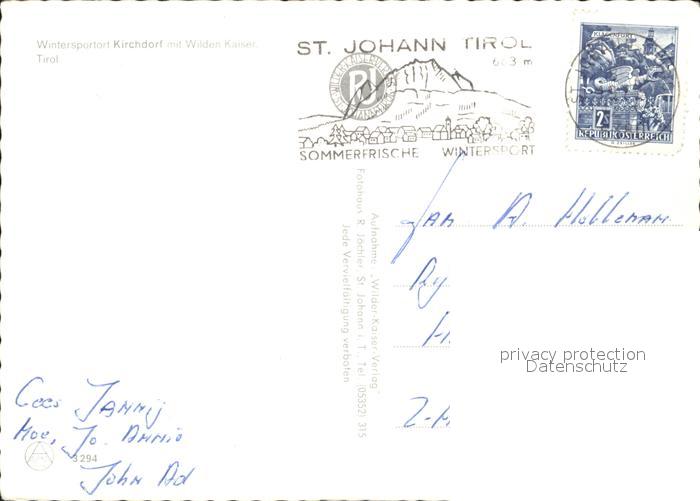 Wintersportort Kirchdorf mit Wilden Kaiser,
Tirol
ST. JOHANN TIROL
663 m
SOMMERFRISCHE WINTERSPORT
KLAGENFURT
2 S
REPUBLIK ÖSTERREICH
Aufnahme „Wilder-Kaiser-Verlag“
Fotohaus R. Jöchler, St. Johann i. T., Tel. (05352) 315
Jede Vervielfältigung verboten
Fam A. Holleman
Ry
H.
Z-H
privacy protection
Datenschutz
Cees Janny
Moe, Jo. Annie
John Ad
3294